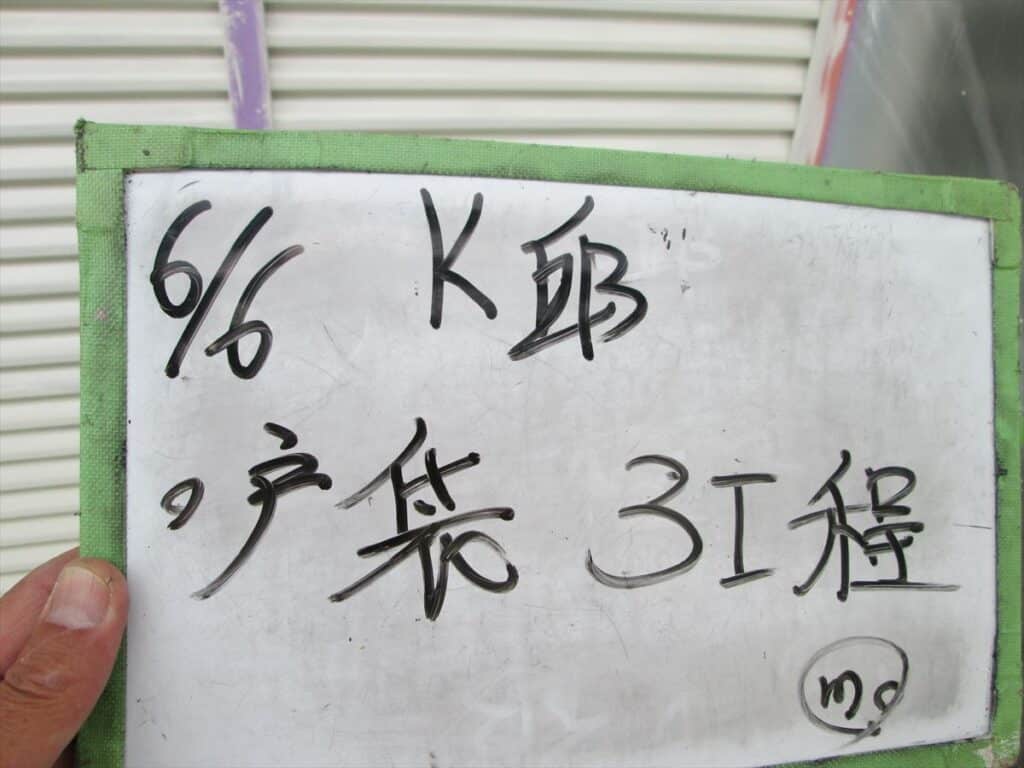 6/6 K邸
○戸袋 3工程